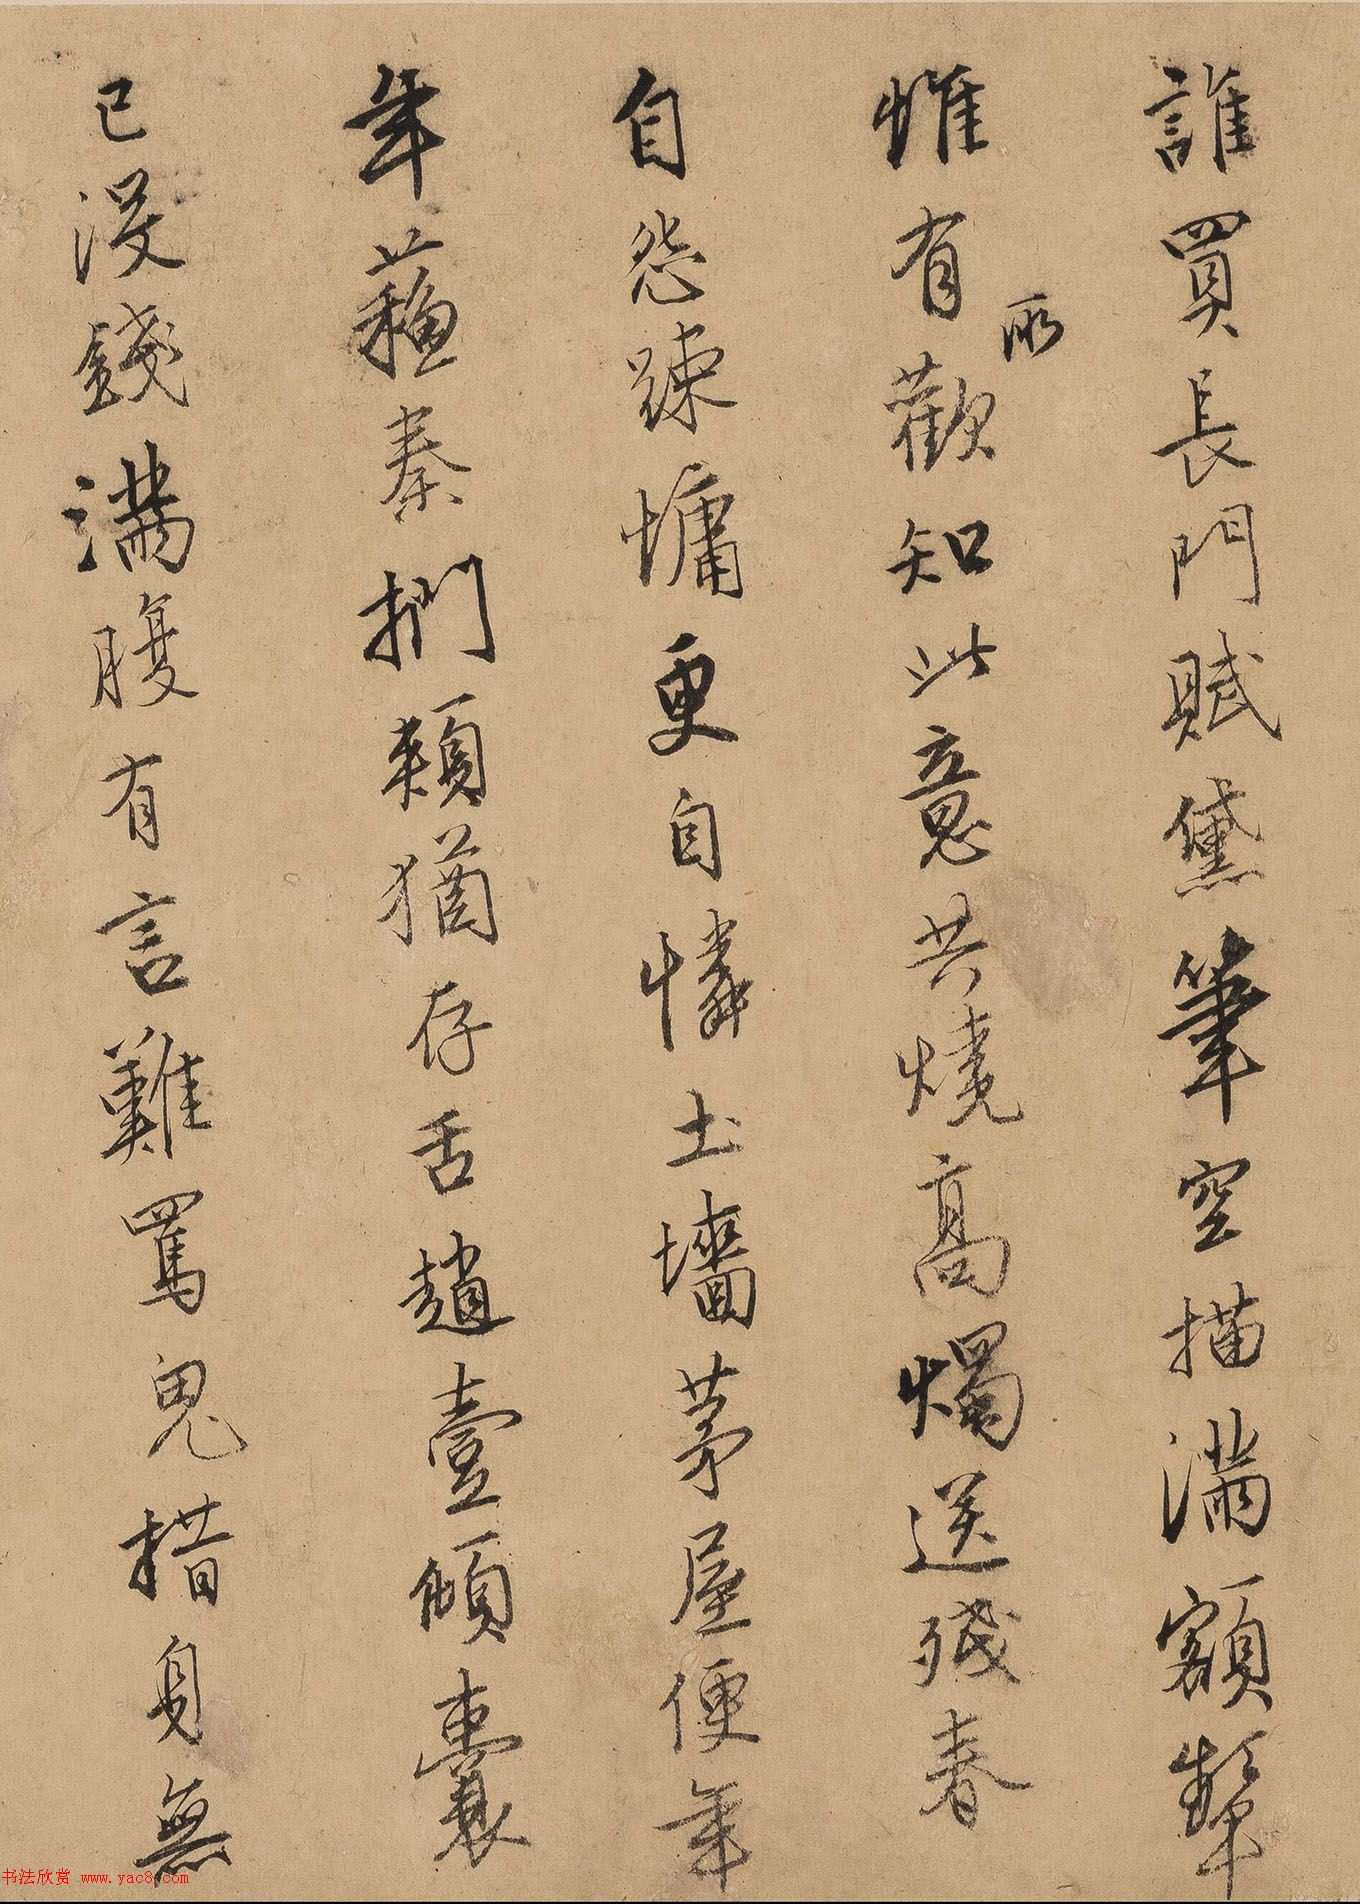 誰買長門賦黛筆空描滿額顰
惟有歡知此意共燒高燭送殘春
所
自怨踈慵更自憐土墻茅屋便年
年蘓秦捫頰猶存舌趙壹傾囊
已沒錢滿腹有言難罵鬼措身無
书法欣赏 www.yac8.com